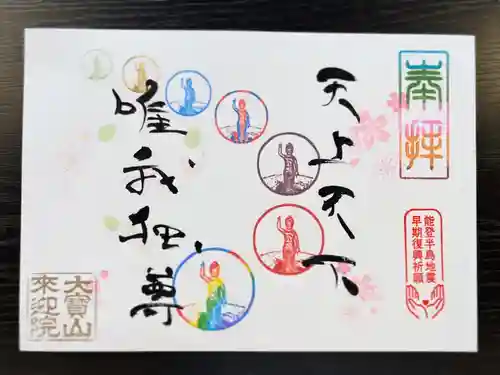 奉拝
能登半島地震
早期復興祈願
天上天下
唯我独尊
大寶山
来迎院